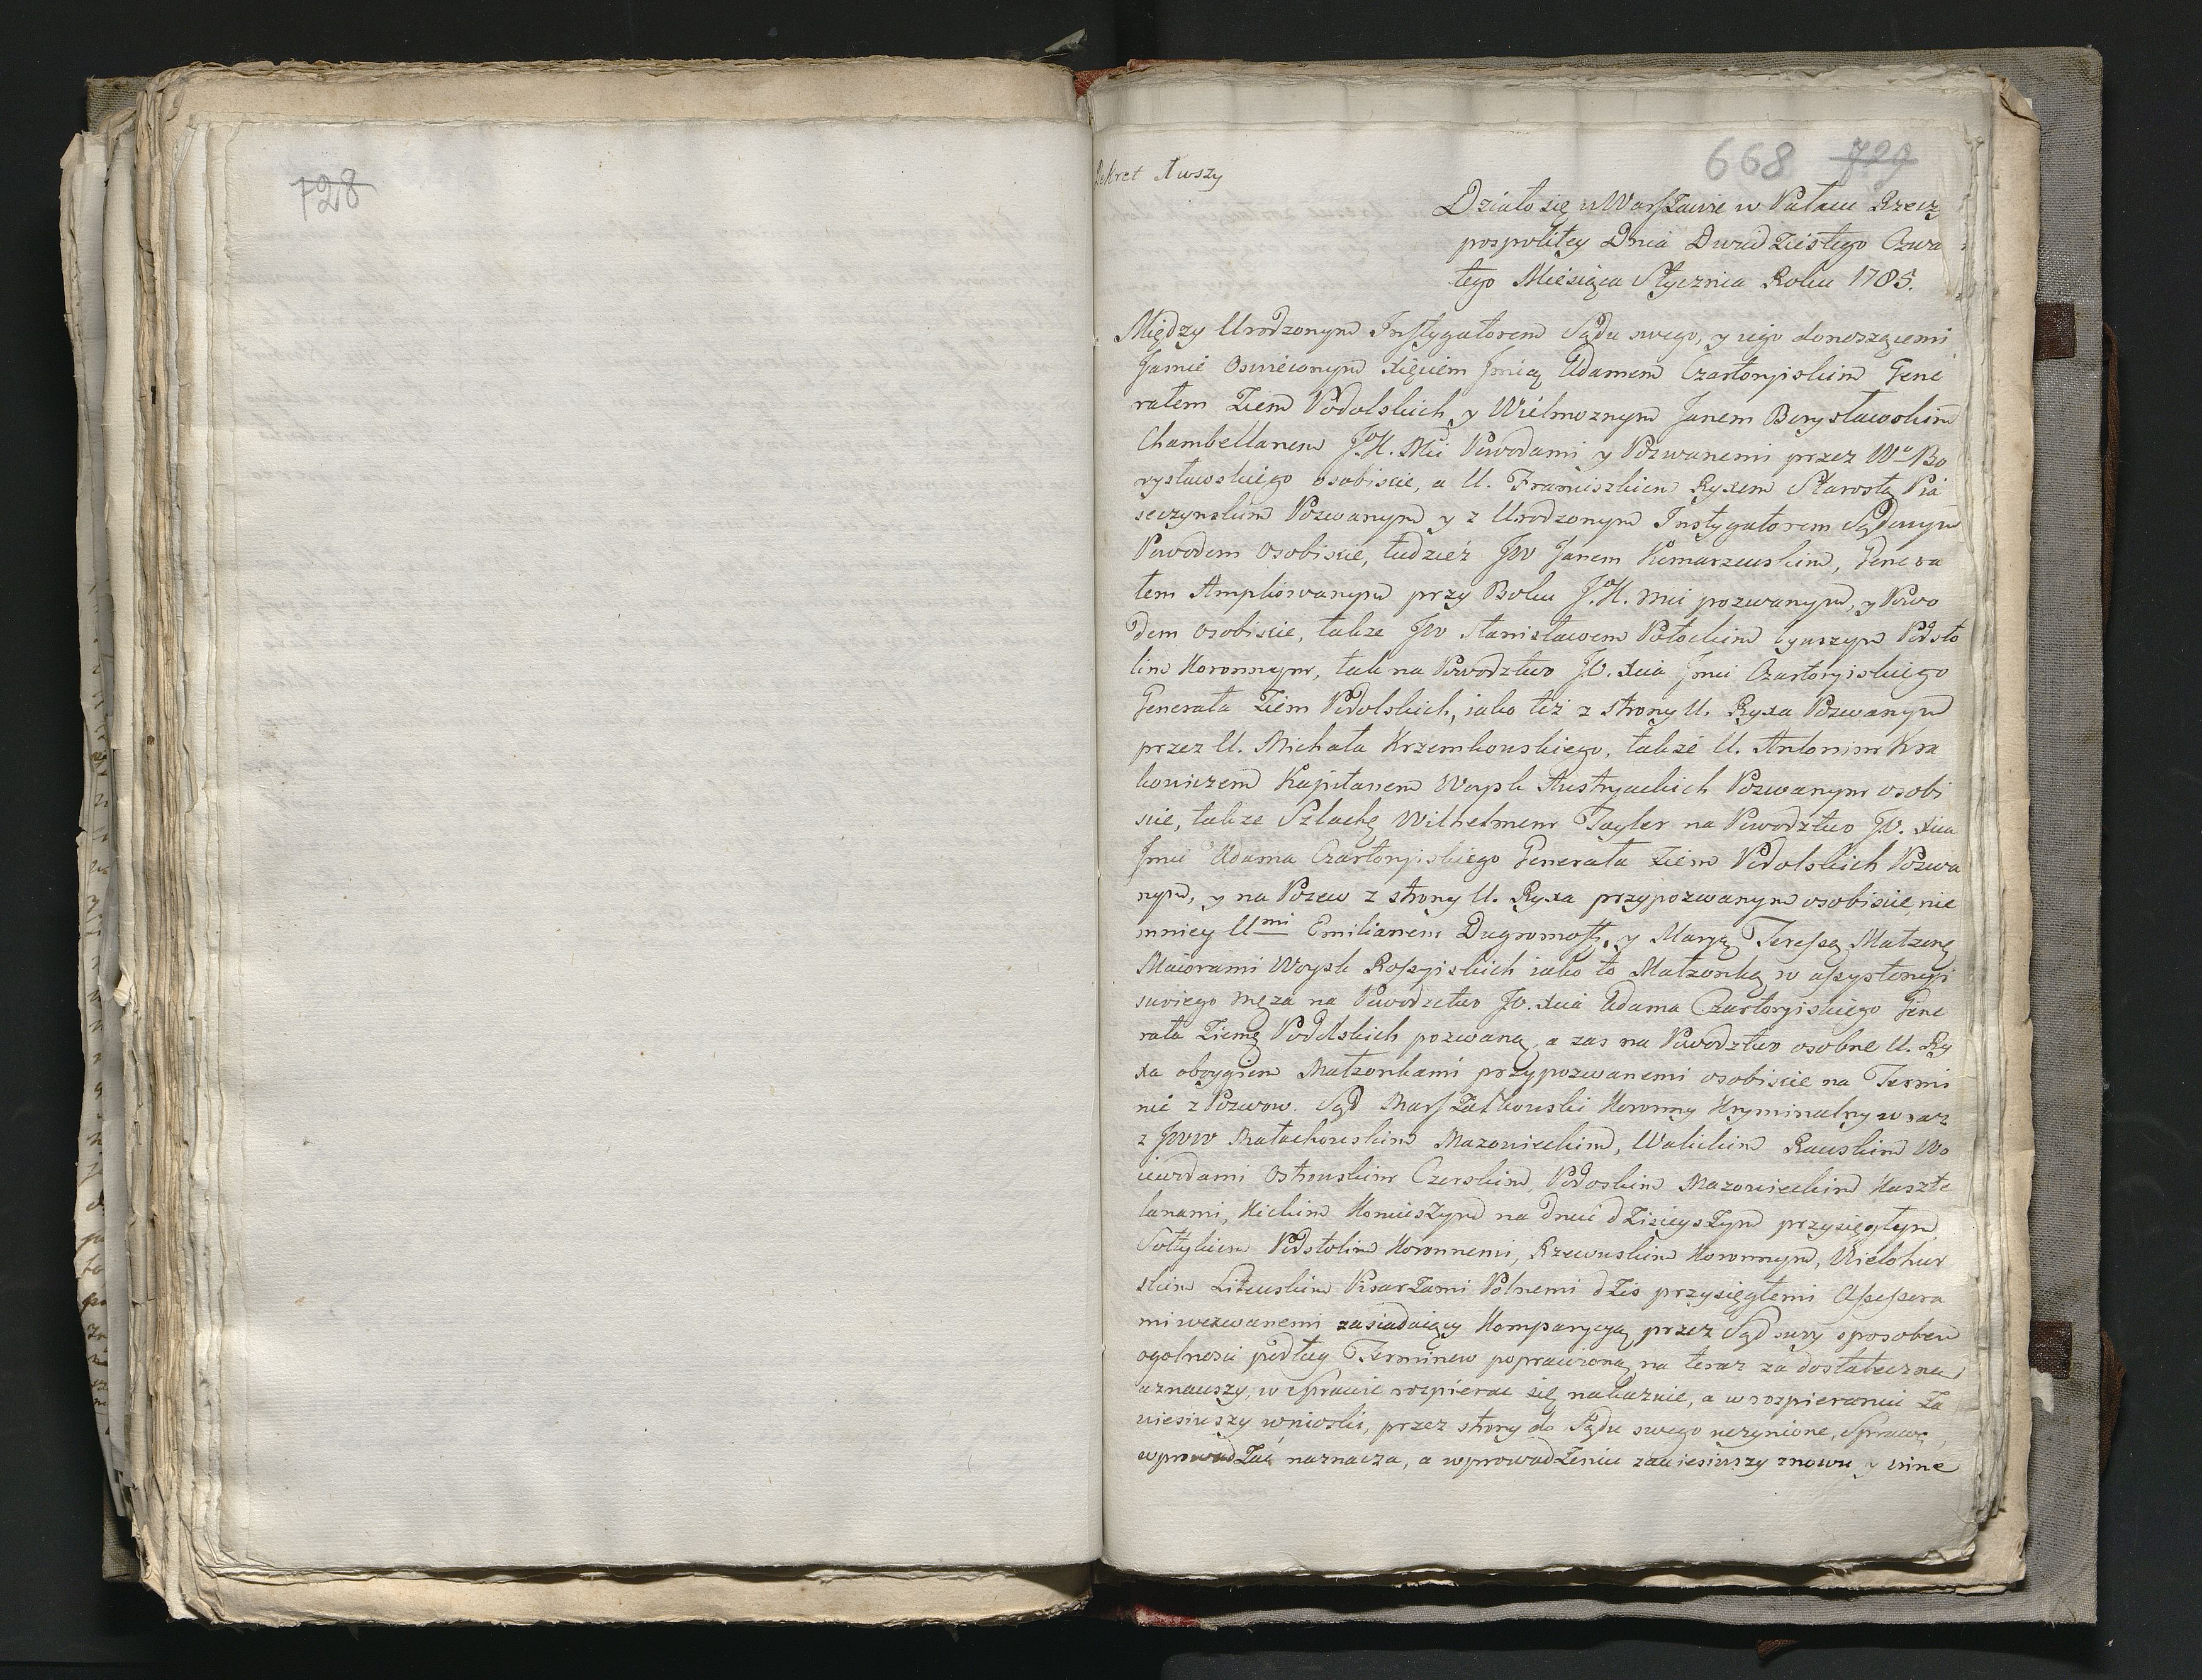 728
668 729
Dekret 1wszy
Działo się w Warszawie w Pałacu Rzeczy
pospolitey Dnia Dwudziestego Czwa
tego Miesiąca Stycznia Roku 1785.
Między Urodzonym Instygatorem Sądu swego, y iego donoszącemi
Jaśnie Oswieconym Xięciem Jmią Adamem Czartoryiskim Gene
rałem Ziem Podolskich, y Wielmoznym Janem Borysławskim
Chambellanem J.K. Mci Powodami y Pozwanemi przez Wo Bo
rysławskiego osobiscie, a U. Franciszkiem Ryxem Starostą Pia
seczynskim Pozwanym y z Urodzonym Instygatorem Sądowym
Powodem osobiscie, tudzież JW Janem Komarzewskim, Genera
łem Ampliowanym przy Boku J.K. Mci pozwanym, y Powo
dem osobiscie, także JW Stanisławem Potockim bywszym Podsto
lim Koronnym, tak na Powodztwo JO. Xcia Jmci Czartoryiskiego
Generała Ziem Podolskich, iako też z strony U. Ryxa Pozwanym
przez U. Michała Krzemkowskiego, także U. Antonim Kra
kowiczem Kapitanem Woysk Austryackich Pozwanym osobi
scie, także Szlachę Wilhelmem Tayler na Powodztwo JO. Xcia
Jmci Adama Czartoryiskiego Generała Ziem Podolskich Pozwa
nym, y na Pozew z strony U. Ryxa przypozwanym osobiscie, nie
mniey Umi Emilianem Dugromoff, y Maryą Teressą Małżonę
Maiorami Woysk Rossyiskich iako to Małzonką w assystencyi
swoiego męza na Powodztwo JO. Xcia Adama Czartoryiskiego Gene
rała Ziemę Podolskich pozwaną, a zas na Powodztwo osobne U. Ry
xa oboygiem Małzonkami przypozwanemi osobiscie na Termi
nie z Pozwow. Sąd Marszałkowski Koronny Kryminalny wraz
z JWW Małachowskim Mazowieckim, Walickim Rawskim Wo
iewodami Ostrowskim Czerskim, Podoskim Mazowieckim Kaszte
lanami, Kickim Koniuszym na dniu dzisieyszym przysięgłym
Sołtykiem Podstolim Koronnemi, Rzewuskim Koronnym, Wielohur
skim Litewskim Pisarzami Polnemi dzis przysięgłemi Assessora
mi wezwanemi zasiadaiący Komparycyą przez Sąd swoy sposobem
ogolnosci podług Terminow poprawioną na teraz za dostateczną
uznawszy, w sprawie rozpierac się nakaznie, a w rozpieraniu za
wiesiwszy wnioski, przez strony do Sądu swego uczynione, Sprawę
wprowadzać naznacza, a wprowadzeniu zawiesiwszy znowu y inne